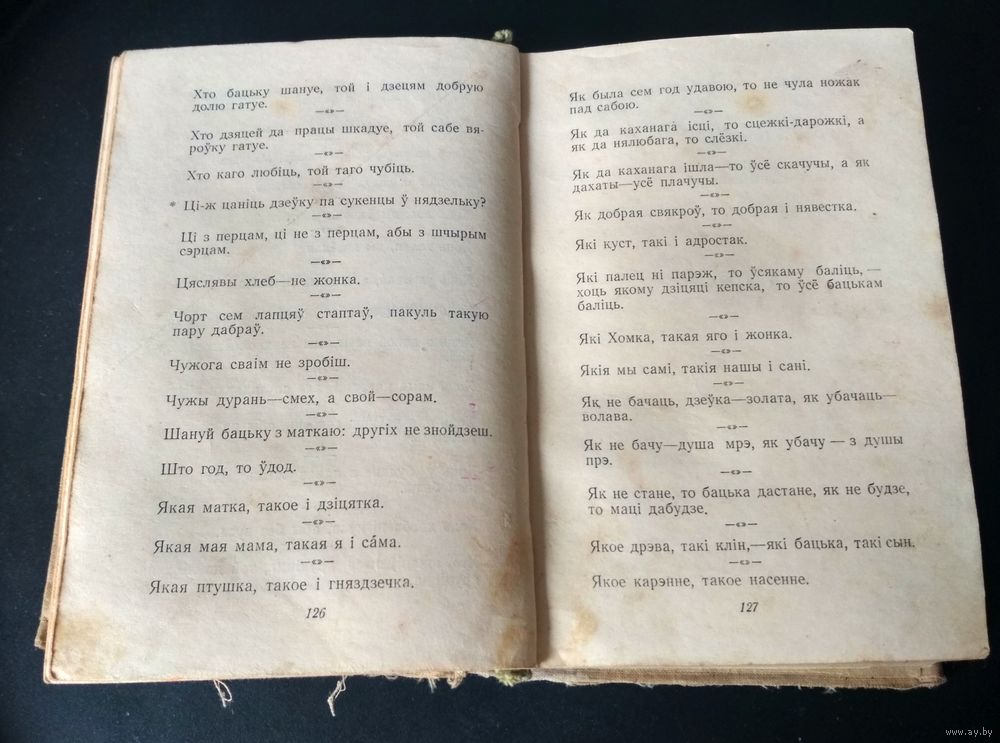 Хто бацьку шануе, той і дзецям добрую
долю гатуе.
—«»—
Хто дзяцей да працы шкадуе, той сабе вя-
роўку гатуе.
—«»—
Хто каго любіць, той таго чубіць.
—«»—
* Ці-ж цаніць дзеўку па сукенцы ў нядзельку?
—«»—
Ці з перцам, ці не з перцам, абы з шчырым
сэрцам.
—«»—
Цяслявы хлеб—не жонка.
—«»—
Чорт сем лапцяў стаптаў, пакуль такую
пару дабраў.
—«»—
Чужога сваім не зробіш.
—«»—
Чужы дурань—смех, а свой—сорам.
—«»—
Шануй бацьку з маткаю: другіх не знойдзеш.
—«»—
Што год, то ўдод.
—«»—
Якая матка, такое і дзіцятка.
—«»—
Якая мая мама, такая я і са́ма.
—«»—
Якая птушка, такое і гняздзечка.
126
Як была сем год удавою, то не чула ножак
пад сабою.
—«»—
Як да каханага ісці, то сцежкі-дарожкі, а
як да нялюбага, то слёзкі.
—«»—
Як да каханага ішла—то ўсё скачучы, а як
дахаты—усё плачучы.
—«»—
Як добрая свякроў, то добрая і нявестка.
—«»—
Які куст, такі і адростак.
—«»—
Які палец ні парэж, то ўсякаму баліць,—
хоць якому дзіцяці кепска, то ўсё бацькам
баліць.
—«»—
Які Хомка, такая яго і жонка.
—«»—
Якія мы самі, такія нашы і сані.
—«»—
Як не бачаць, дзеўка—золата, як убачаць—
волава.
—«»—
Як не бачу—душа мрэ, як убачу — з душы
прэ.
—«»—
Як не стане, то бацька дастане, як не будзе,
то маці дабудзе.
—«»—
Якое дрэва, такі клін,—які бацька, такі сын.
—«»—
Якое карэнне, такое насенне.
127
www.ay.by